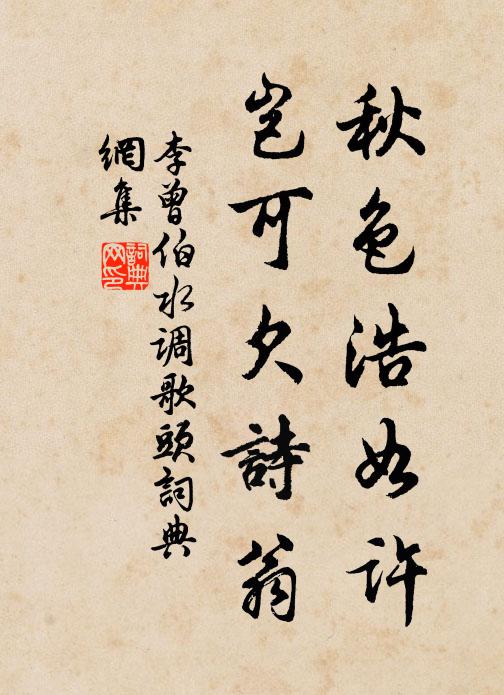 秋色浩如许
岂可欠詩翁
李曾伯水调歌頭詞典
網集
詞典网印